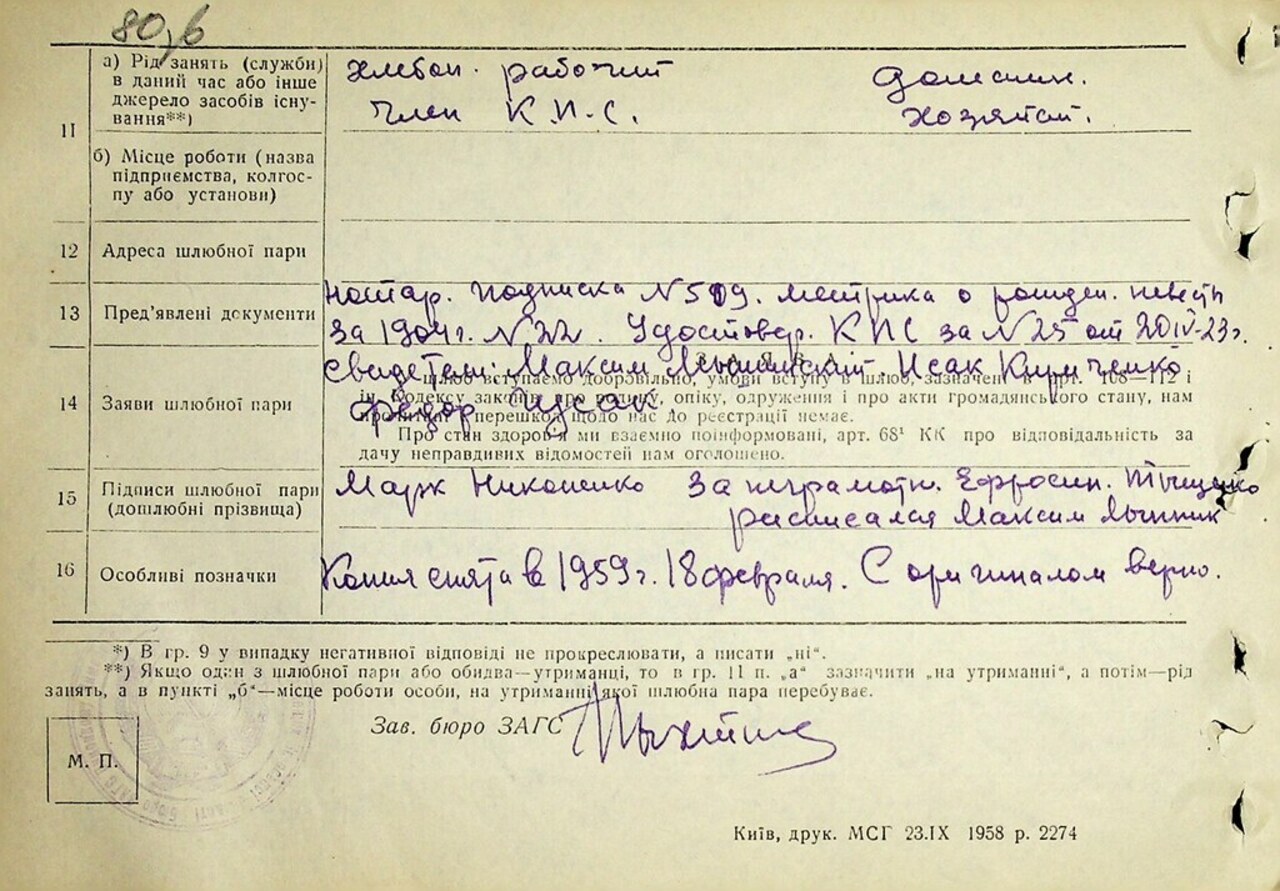 80,б
11
а) Рід занять (служби) в даний час або інше джерело засобів існування**)
хлебоп. рабочий домашн.
член К.Н.С. хозяйст.
б) Місце роботи (назва підприємства, колгоспу або установи)
12 Адреса шлюбної пари
13 Пред’явлені документи
нотар. подписка №519. метрика о рожден. невесты
за 1904г. №22. Удостовер. КНС за №25 от 20 IV-23г.
14 Заяви шлюбної пари
Свидетели: Максим Исак Кириченко
Федор Гусак
ЗАЯВА
шлюб вступаємо добровільно, умови вступу в шлюб, зазначені в арт. 108—112 і
Кодексу законів про родину, опіку, одруження і про акти громадянського стану, нам
перешкод щодо нас до реєстрації немає.
Про стан здоров’я ми взаємно поінформовані, арт. 68¹ КК про відповідальність за
дачу неправдивих відомостей нам оголошено.
15 Підписи шлюбної пари (дошлюбні прізвища)
Марк Никоненко За неграмотн. Ефросин. Тыщенко
расписался Максим
16 Особливі позначки
Копия снята в 1959г. 18 февраля. С оригиналом верно.
*) В гр. 9 у випадку негативної відповіді не прокреслювати, а писати „ні“.
**) Якщо один з шлюбної пари або обидва—утриманці, то в гр. 11 п. „а“ зазначити „на утриманні“, а потім—рід
занять, а в пункті „б“—місце роботи особи, на утриманні якої шлюбна пара перебуває.
Зав. бюро ЗАГС
М. П.
Київ, друк. МСГ 23.IX 1958 р. 2274